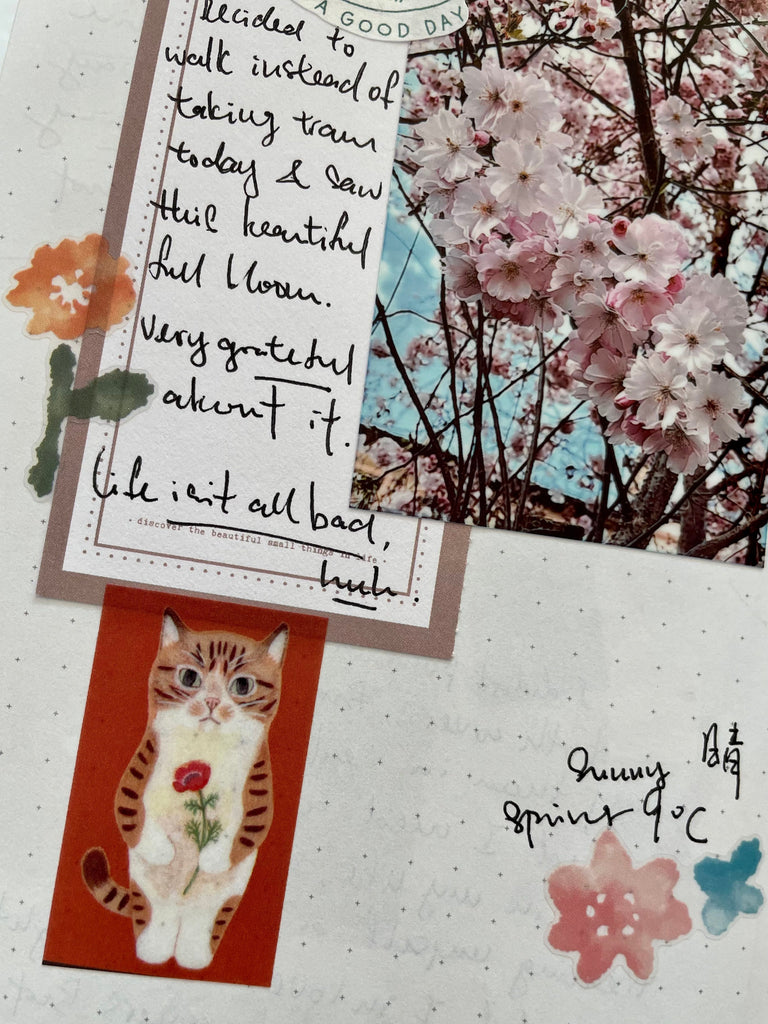 A GOOD DAY
Decided to
walk instead of
taking tram
today & saw
this beautiful
full bloom.
very grateful
about it.
Life isn't all bad,
- discover the beautiful small things in life -
huh.
Sunny 晴
9°C